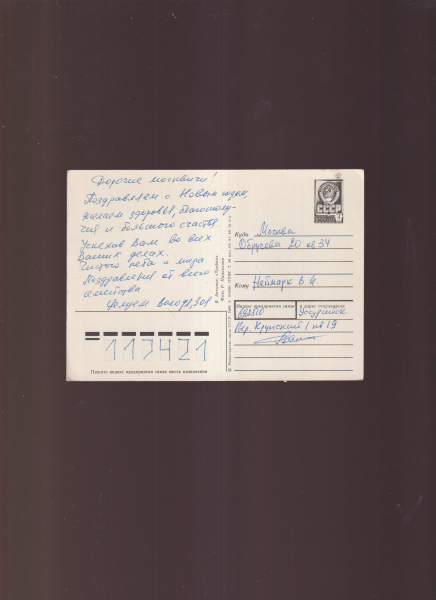 Дорогие москвичи!
Поздравляем с Новым годом,
желаем здоровья, благополу-
чия и большого счастья.
Успехов Вам во всех
Ваших делах.
Чистого неба и мира.
Поздравления от всего
семейства.
Целуем
СССР
Куда Москва
Обручева 20 кв. 34
Кому Неймарк В. И.
Индекс предприятия связи и адрес отправителя
Уссурийск
Пер. Крупской 1 кв 19
117421
Пишите индекс предприятия связи места назначения